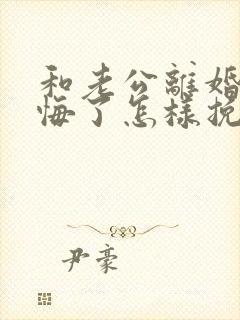 和老公離婚
悔了怎樣挽
尹豪